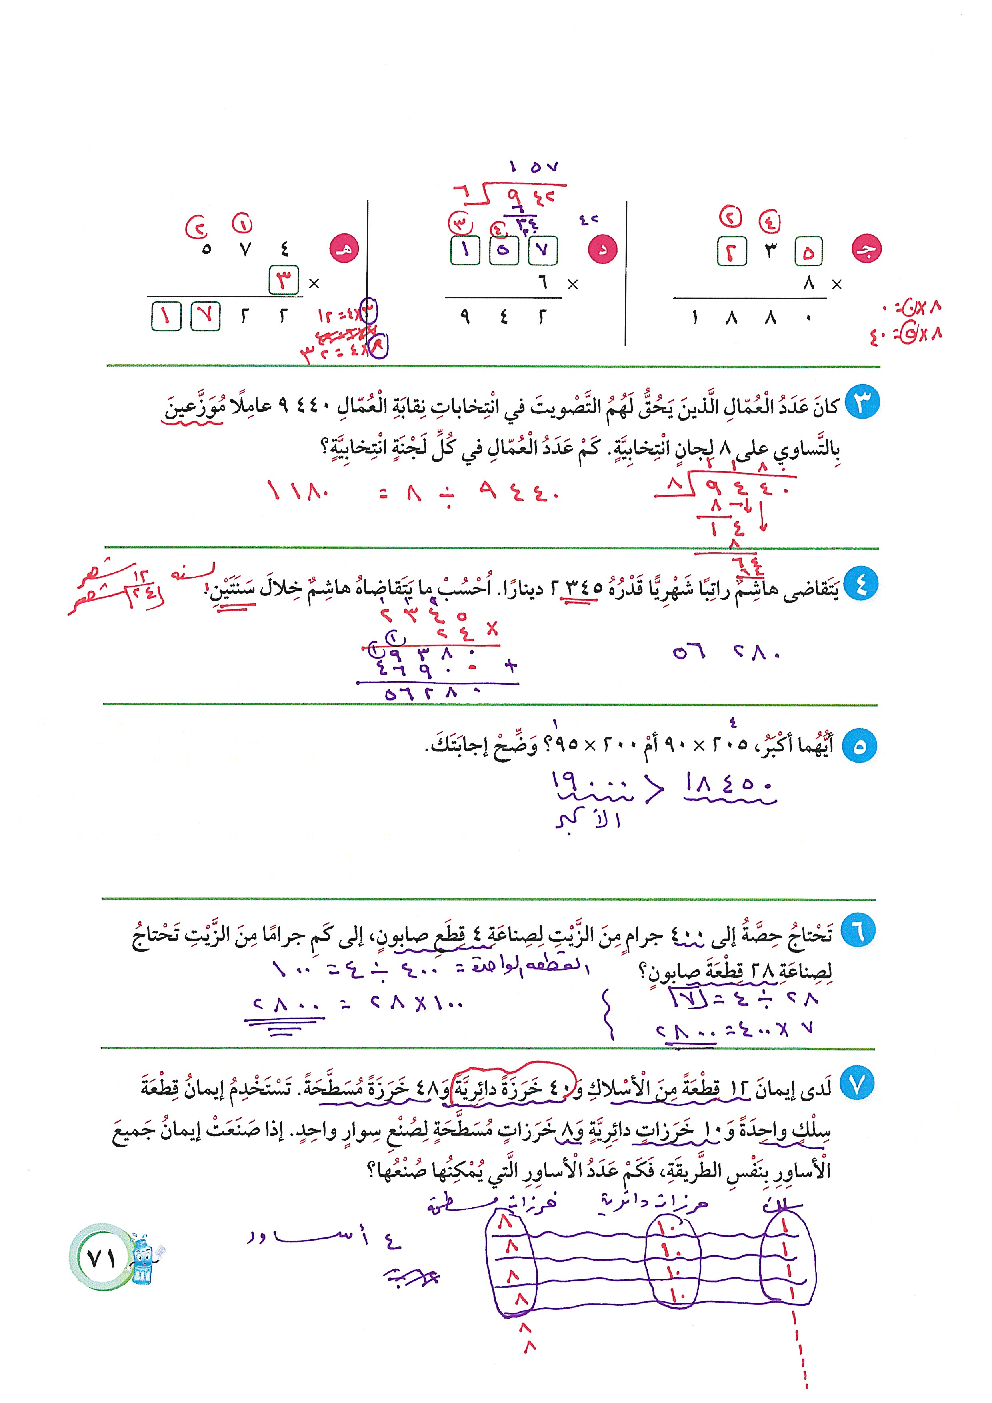 ١ ٥ ٧
٦ ٩ ٤ ٢
٦
٣ ٤
٤٢
٢ ٤
جـ ٢ ٣ ٥
× ٨
١ ٨ ٨ ٠
٨×٠=٠
٨×٥=٤٠
٣ ٤
د ١ ٥ ٧
× ٦
٩ ٤ ٢
٢ ١
هـ ٥ ٧ ٤
× ٣
١ ٧ ٢ ٢
٣×٤=١٢
٨×٤=٣٢
٣ كانَ عَدَدُ الْعُمّالِ الَّذينَ يَحُقُّ لَهُمُ التَّصْويتَ في انْتِخاباتِ نِقابَةِ الْعُمّالِ ٤٤٠ ٩ عامِلًا مُوَزَّعينَ
بِالتَّساوي على ٨ لِجانٍ انْتِخابِيَّةٍ. كَمْ عَدَدُ الْعُمّالِ في كُلِّ لَجْنَةٍ انْتِخابِيَّةٍ؟
١ ١ ٨ ٠
٨ ٩ ٤ ٤ ٠
٨
١ ٤
٨
٦ ٤
٩ ٤ ٤ ٠ ÷ ٨ = ١١٨٠
٤ يَتَقاضى هاشِمٌ راتِبًا شَهْرِيًّا قَدْرُهُ ٣٤٥ ٢ دينارًا. اُحْسُبْ ما يَتَقاضاهُ هاشِمٌ خِلالَ سَنَتَيْنِ.
سنه ١٢ شهر
٢٤ شهر
٢ ٣ ٤ ٥
× ٢ ٤
٩ ٣ ٨ ٠
+ ٤ ٦ ٩ ٠ ٠
٥ ٦ ٢ ٨ ٠
٥٦ ٢٨٠
٥ أَيُّهُما أَكْبَرُ، ٢٠٥ × ٩٠ أمْ ٢٠٠ × ٩٥؟ وَضِّحْ إجابَتَكَ.
١٨٤٥٠ < ١٩٠٠٠
الأكبر
٦ تَحْتاجُ حِصَّةُ إلى ٤٠٠ جرامٍ مِنَ الزَّيْتِ لِصِناعَةِ ٤ قِطَعِ صابونٍ، إلى كَم جرامًا مِنَ الزَّيْتِ تَحْتاجُ
لِصِناعَةِ ٢٨ قِطْعَةَ صابونٍ؟
القطعه الواحدة = ٤٠٠ ÷ ٤ = ١٠٠
٢٨ ÷ ٤ = ٧
١٠٠×٢٨ = ٢٨٠٠
٧ × ٤٠٠ = ٢٨٠٠
٧ لَدى إيمانَ ١٢ قِطْعَةً مِنَ الْأَسْلاكِ وَ٤٠ خَرَزَةً دائِرِيَّةً وَ٤٨ خَرَزَةً مُسَطَّحَةً. تَسْتَخْدِمُ إيمانُ قِطْعَةَ
سِلْكٍ واحِدَةً وَ١٠ خَرَزاتٍ دائِرِيَّةٍ وَ٨ خَرَزاتٍ مُسَطَّحَةٍ لِصُنْعِ سِوارٍ واحِدٍ. إذا صَنَعَتْ إيمانُ جَميعَ
الْأَساوِرِ بِنَفْسِ الطَّريقَةِ، فَكَمْ عَدَدُ الْأَساوِرِ الَّتي يُمْكِنُها صُنْعُها؟
سلك خرزات دائرية خرزات مسطحة
١ ١٠ ٨
١ ١٠ ٨
١ ١٠ ٨
١ ١٠ ٨
١ ٨
٨
٤ أساور
٧١